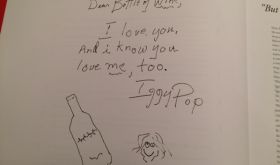 Dear Bottle of Wine,
I love you,
And i know you
love me, too.
Iggy Pop
"But